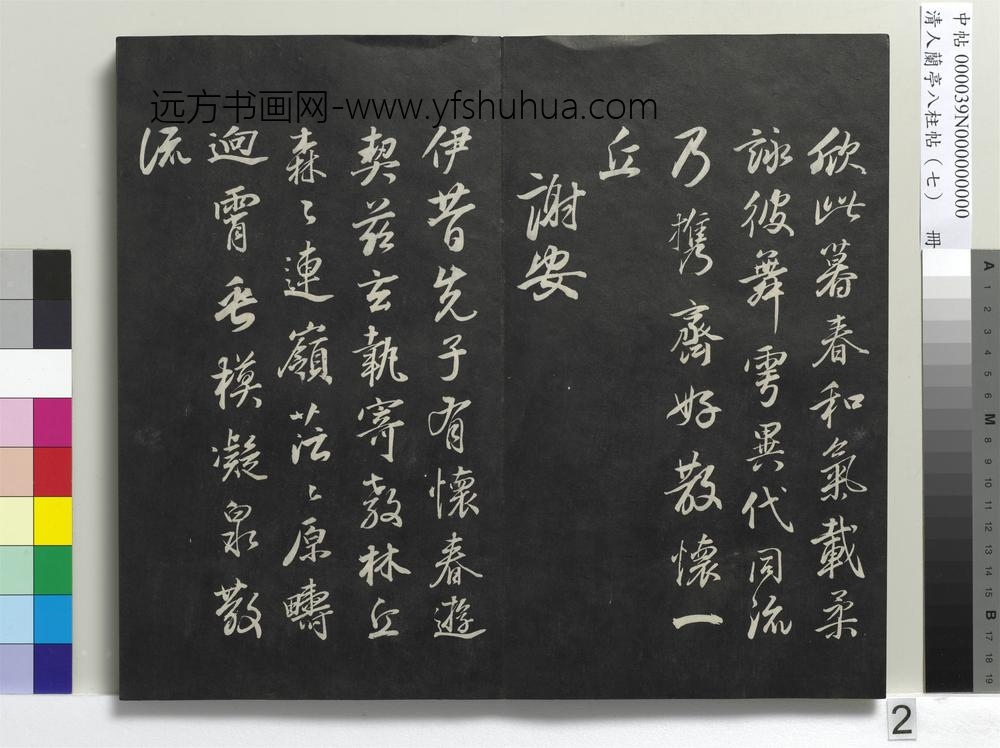 中帖 000039N000000000
清人蘭亭八柱帖（七） 冊
远方书画网-www.yfshuhua.com
欣此暮春和氣載柔
詠彼舞雩異代同流
乃攜齊好散懷一
丘
謝安
伊昔先子有懷春遊
契茲言執寄敖林丘
森〻連嶺茫〻原疇
迥霄垂 凝泉散
流
A 1 2 3 4 5 6 M 8 9 10 11 12 13 14 15 B 17 18 19
2